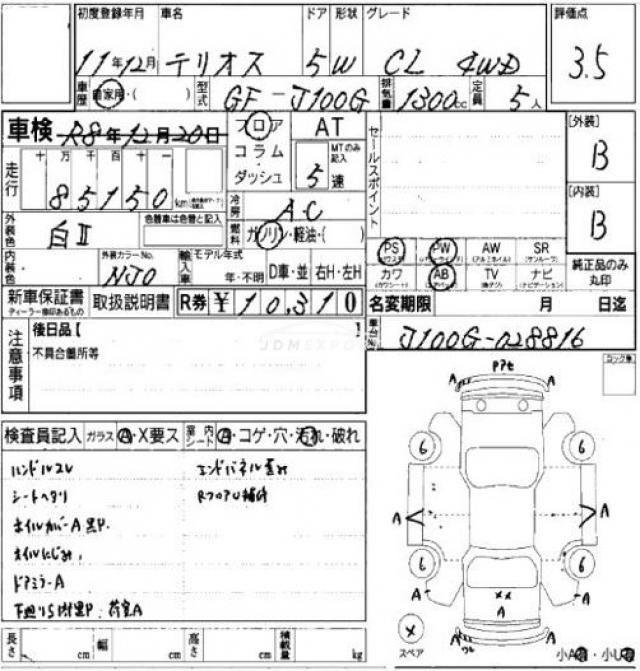 初度登録年月 車名 ドア 形状 グレード 評価点
11年12月 テリオス 5 W CL 4WD 3.5
車歴 自家用・( ) 型式 GF-J100G 排気量 1300cc 定員 5人
車検 R8年12月20日 フロア コラム ダッシュ AT MTのみ記入 5速 セールスポイント [外装] B
走行 十万千百十 85150 km
冷房 AC [内装] B
外装色 白II 色替車は色替と記入 燃料 ガソリン・軽油・( )
内装色 外装カラーNo. NJ0 輸入車 モデル年式 年・不明 D車・並 右H・左H
PS PW AW SR
カワ AB TV ナビ
純正品のみ丸印
新車保証書 取扱説明書 R券 ¥10,310 名変期限 月 日迄
注意事項 後日品【 】
不具合箇所等
車台No. J100G-028816
JDMEXPO
検査員記入 ガラス A・X要ス 室内シート A・コゲ・穴・汚れ・破れ
ハンドルスレ
シートヘタリ
オイルカバーA
オイルにじみ
ドアミラーA
下廻りS 荷室A
エンドパネル歪み
RフロアU補修
A A
6 6
A A
6 6
A A
××
A
× スペア A A
小A 小U
長さ cm 幅 cm 高さ cm 積載量 kg